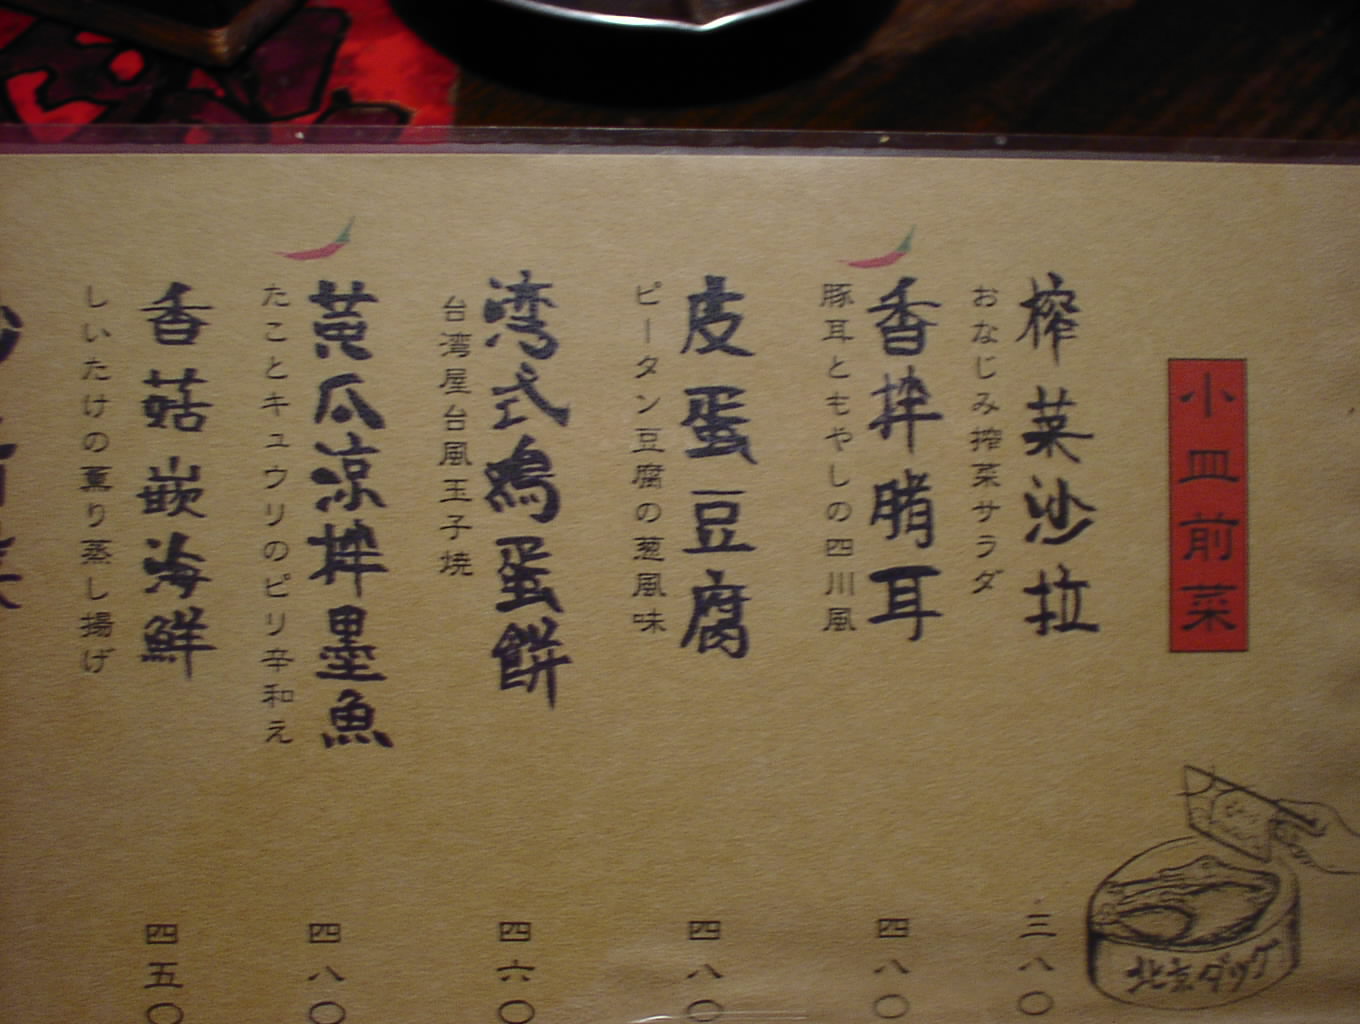 小皿前菜
榨菜沙拉
おなじみ搾菜サラダ
三八〇
香拌脯耳
豚耳ともやしの四川風
四八〇
皮蛋豆腐
ピータン豆腐の葱風味
四八〇
湾式鶏蛋餅
台湾屋台風玉子焼
四六〇
黄瓜涼拌墨魚
たことキュウリのピリ辛和え
四八〇
香菇嵌海鮮
しいたけの薫り蒸し揚げ
四五〇
北京ダック